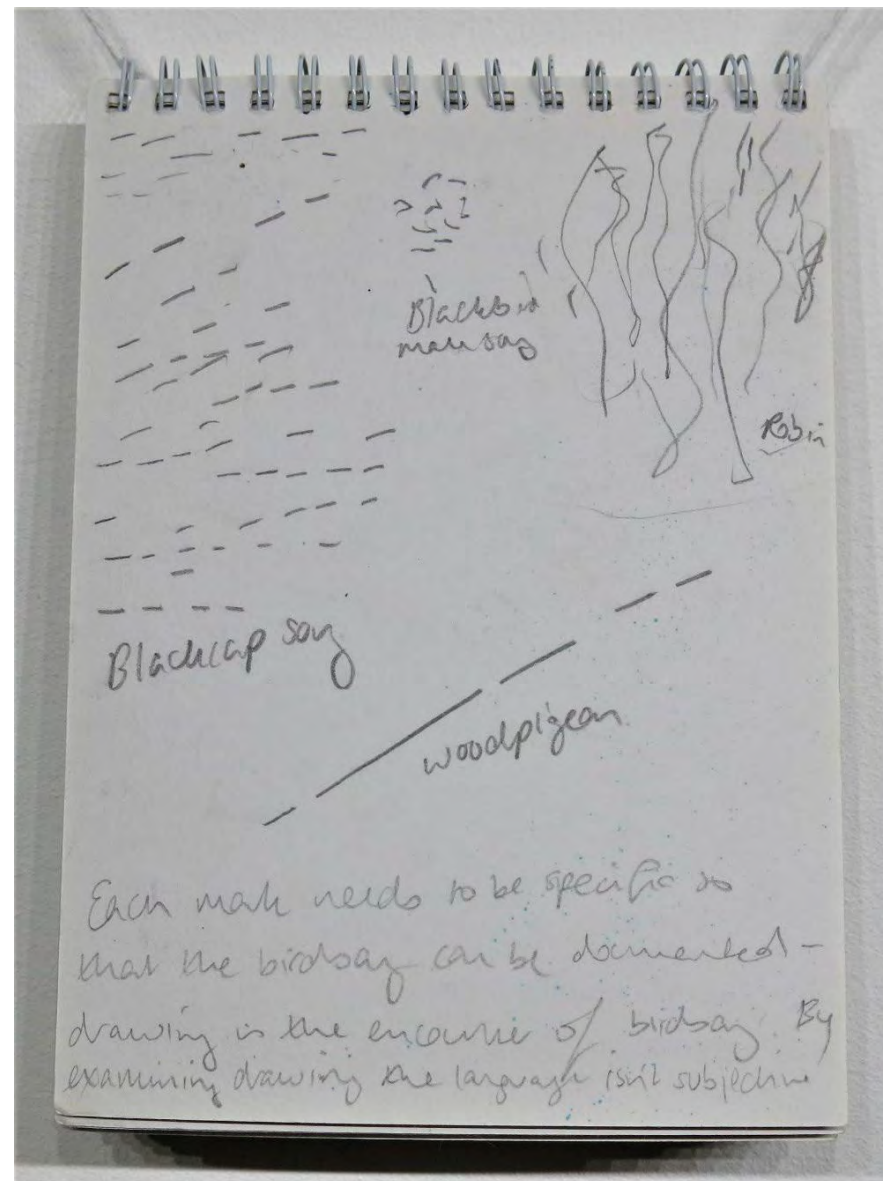 Blackbird
male song
Robin
Blackcap song
woodpigeon
Each mark needs to be specific so
that the birdsong can be documented –
drawing is the encounter of birdsong. By
examining drawing the language isn't subjective